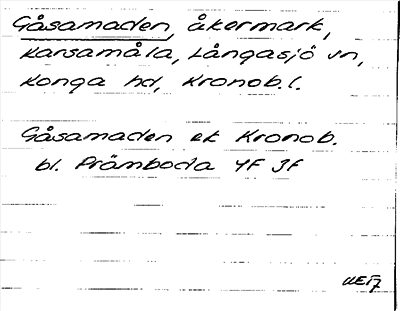 Gåsamaden, åkermark,
Karsamåla, Långasjö sn,
Konga hd, Kronob. l.
Gåsamaden ek Kronob.
bl. Främboda 4F 3f